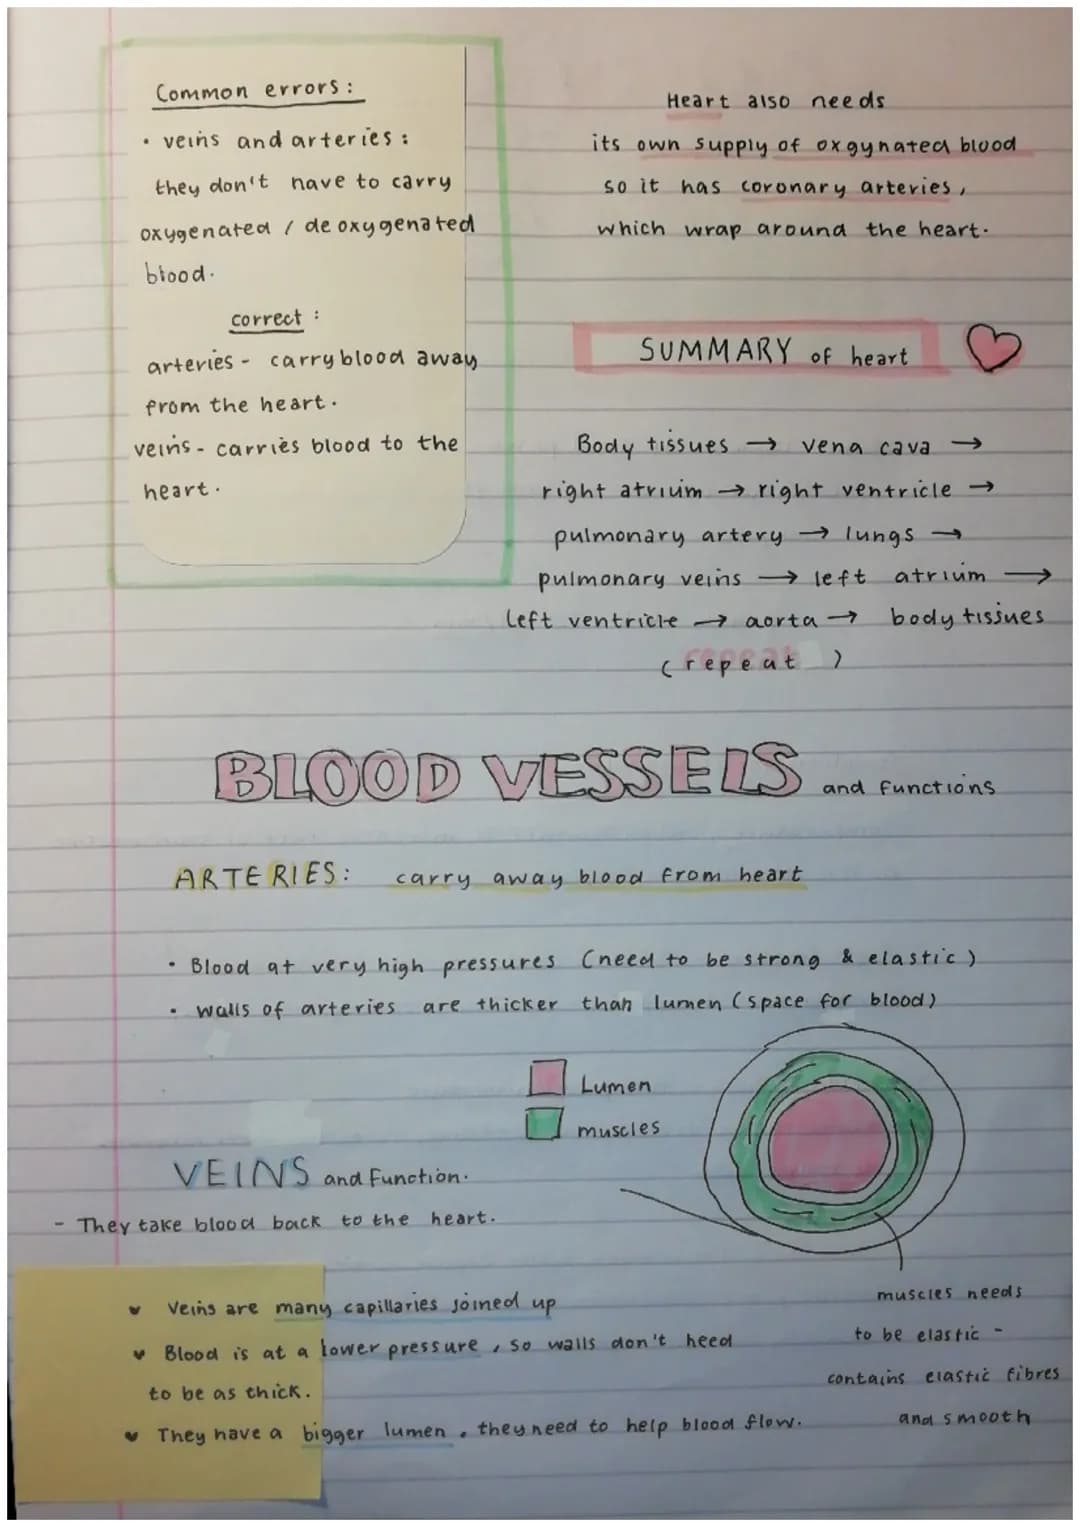 Common errors:
• veins and arteries:
they don't have to carry
oxygenated / deoxygenated
blood.
correct:
arteries - carry blood away
from the heart.
veins - carries blood to the
heart.
Heart also needs
its own supply of oxgynated blood
so it has coronary arteries,
which wrap around the heart.
SUMMARY of heart
Body tissues → vena cava →
right atrium → right ventricle →
pulmonary artery → lungs →
pulmonary veins → left atrium →
left ventricle → aorta → body tissues
(repeat)
BLOOD VESSELS and functions
ARTERIES: carry away blood from heart
• Blood at very high pressures (need to be strong & elastic)
• walls of arteries are thicker than lumen (space for blood)
Lumen
muscles
VEINS and Function.
- They take blood back to the heart.
Veins are many capillaries joined up
Blood is at a lower pressure, so walls don't need
to be as thick.
They have a bigger lumen, they need to help blood flow.
muscles needs
to be elastic -
contains elastic fibres
and smooth